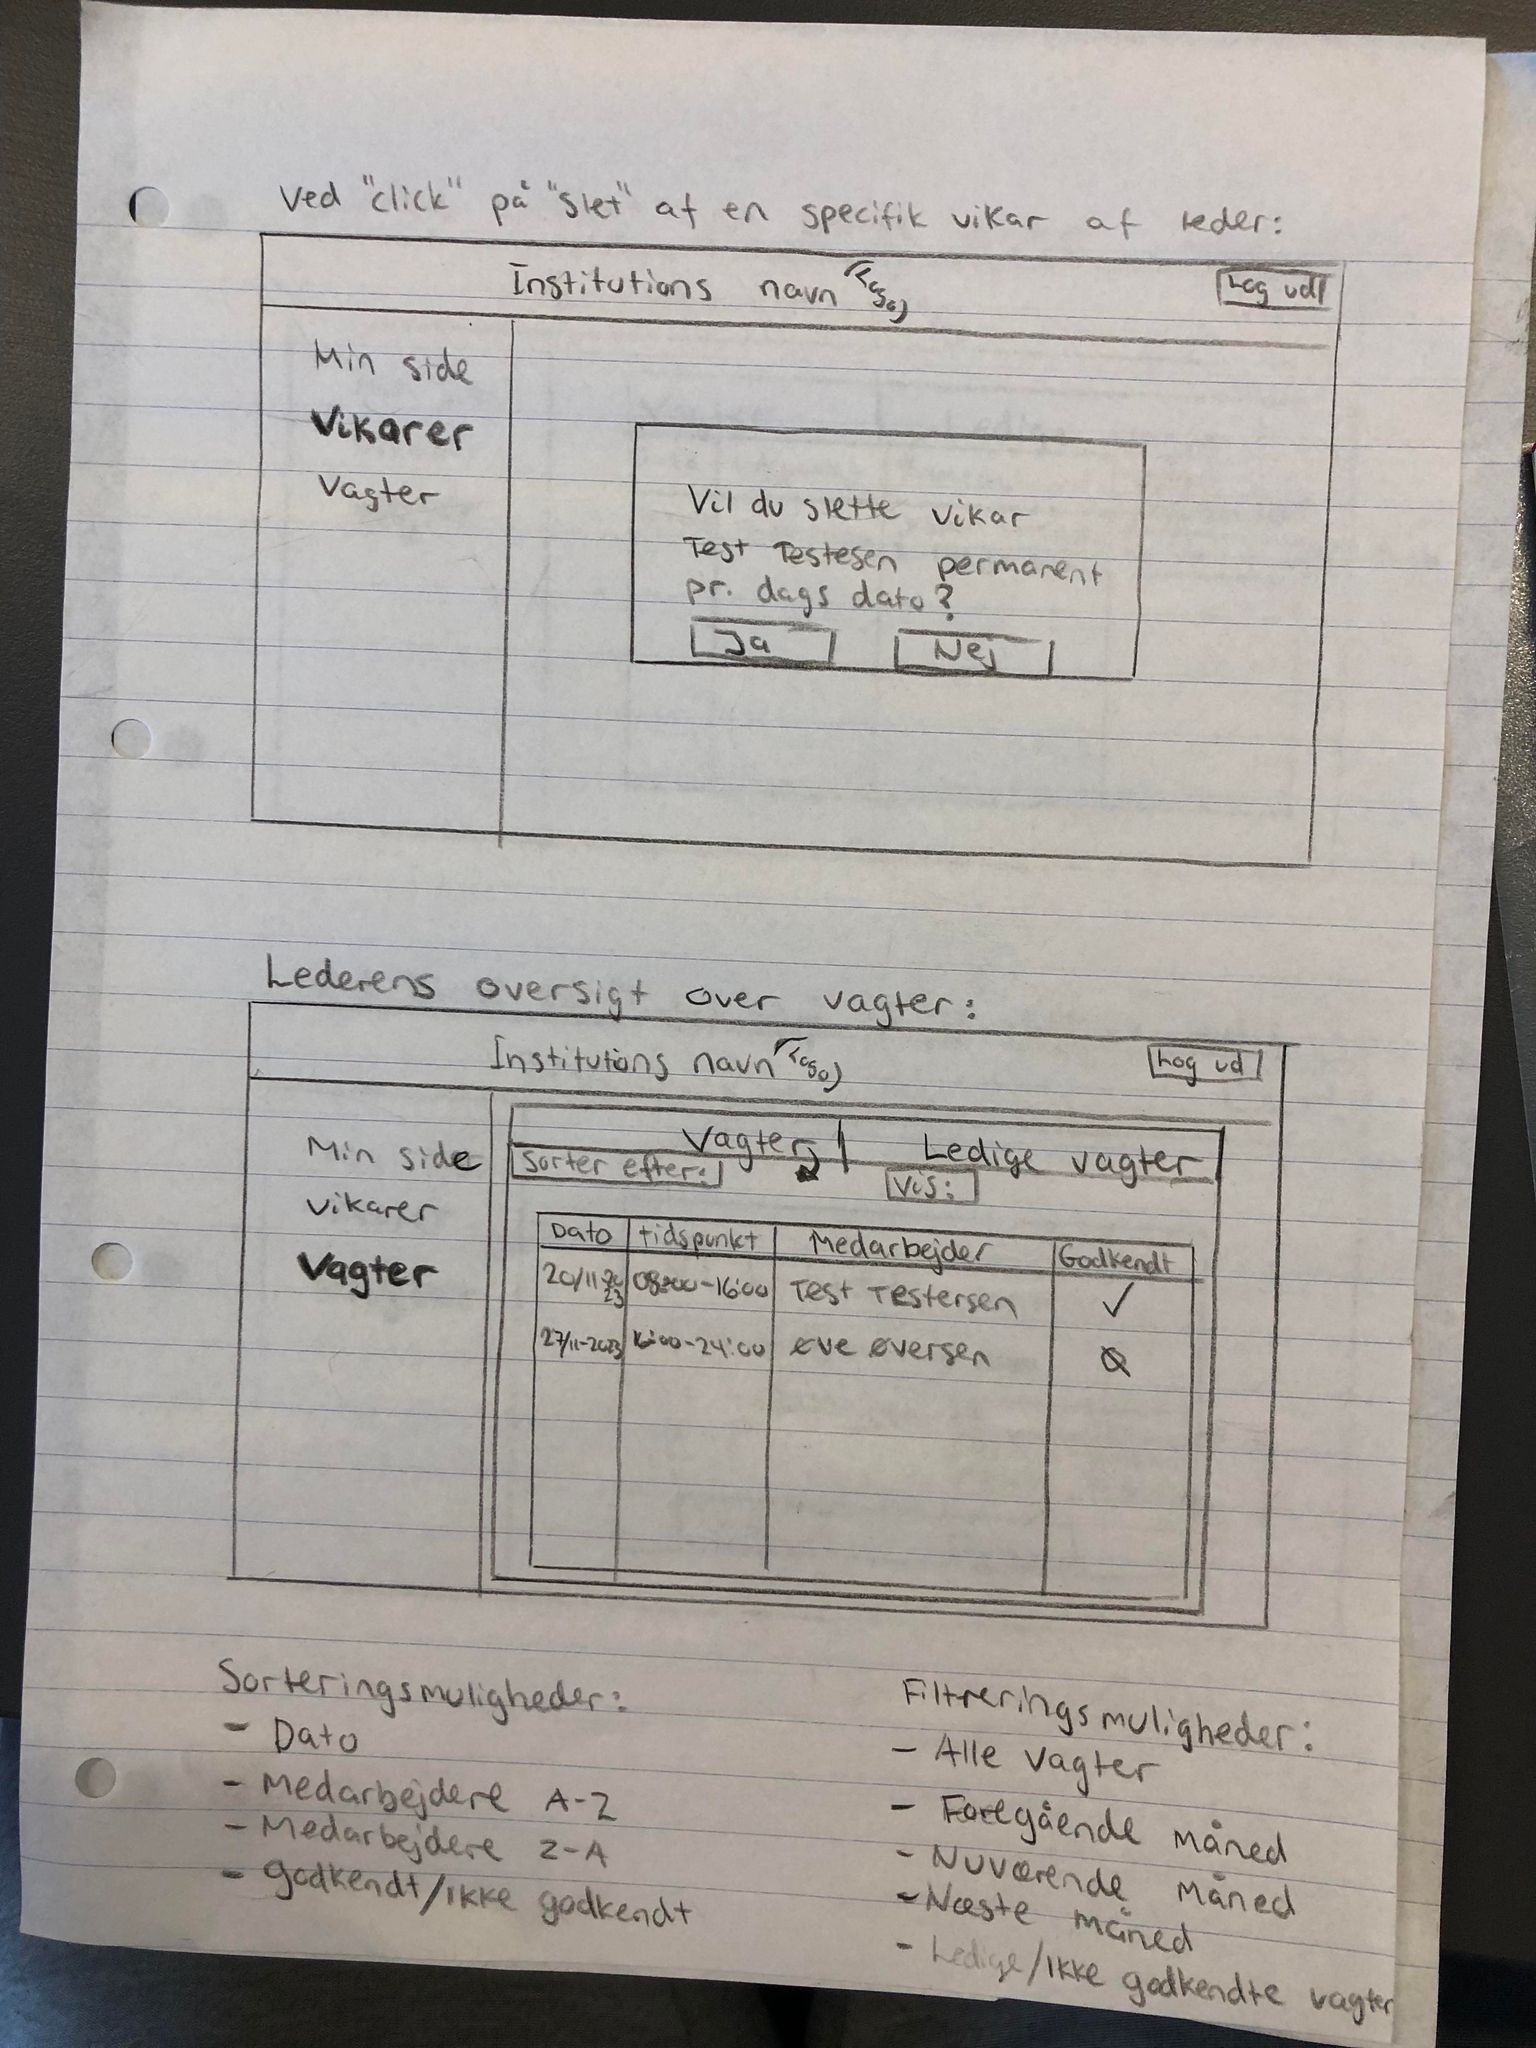 Ved "click" på "slet" af en specifik vikar af leder:
Institutions navn (Logo)
Log ud
Min side
Vikarer
Vagter
Vil du slette vikar
Test Testesen permanent
pr. dags dato?
Ja
Nej
Lederens oversigt over vagter:
Institutions navn (Logo)
Log ud
Min side
Vikarer
Vagter
Vagter
Ledige vagter
Sorter efter:
Vis:
Dato tidspunkt Medarbejder Godkendt
20/11-2023 08:00-16:00 Test Testersen ✓
27/11-2023 16:00-24:00 Øve Øversen
Sorteringsmuligheder:
- Dato
- Medarbejdere A-Z
- Medarbejdere Z-A
- Godkendt/ikke godkendt
Filtreringsmuligheder:
- Alle vagter
- Foregående måned
- Nuværende måned
- Næste måned
- Ledige/ikke godkendte vagter